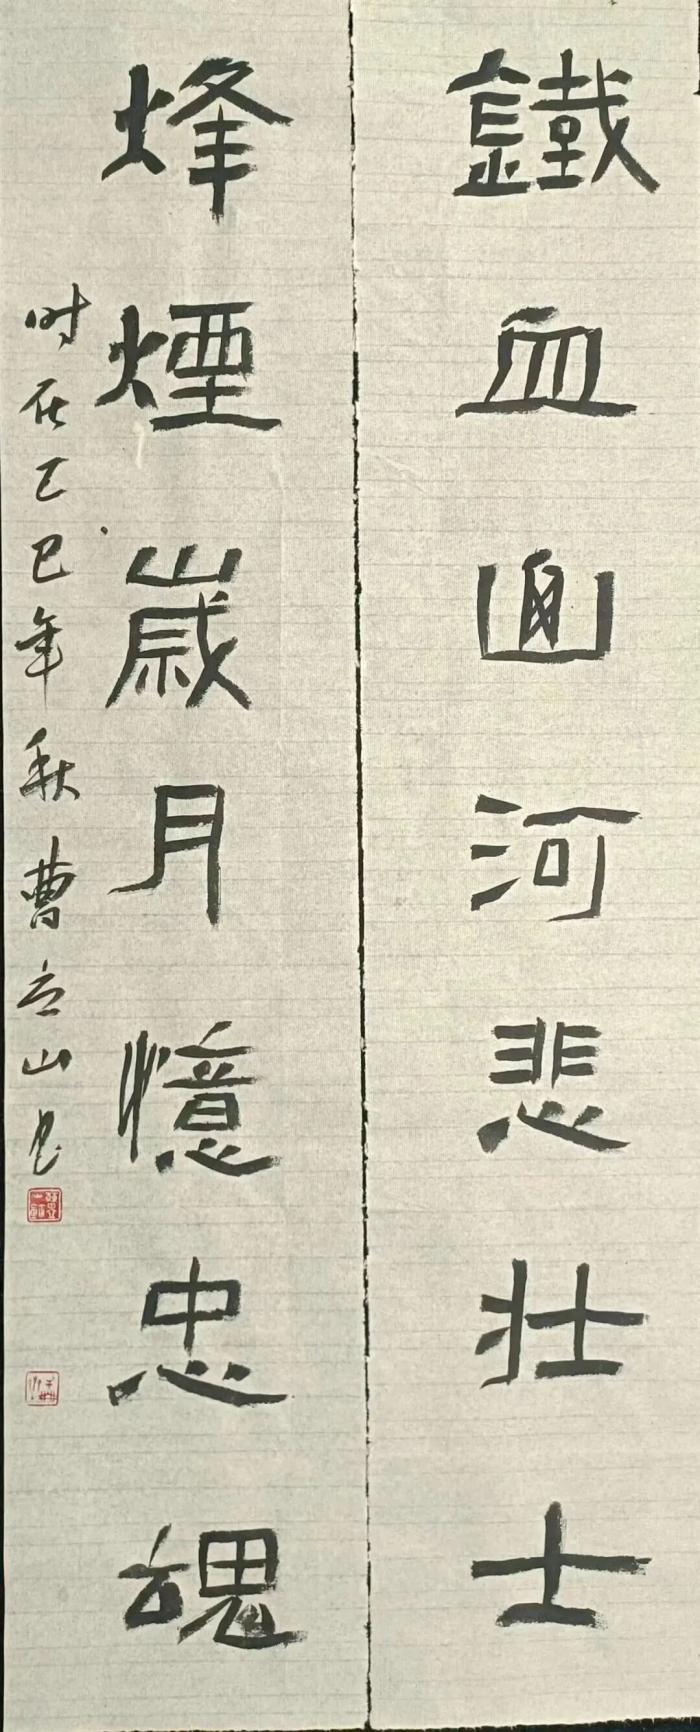 鐵血山河悲壮士
烽煙歲月憶忠魂
时在乙巳年秋曹立山书